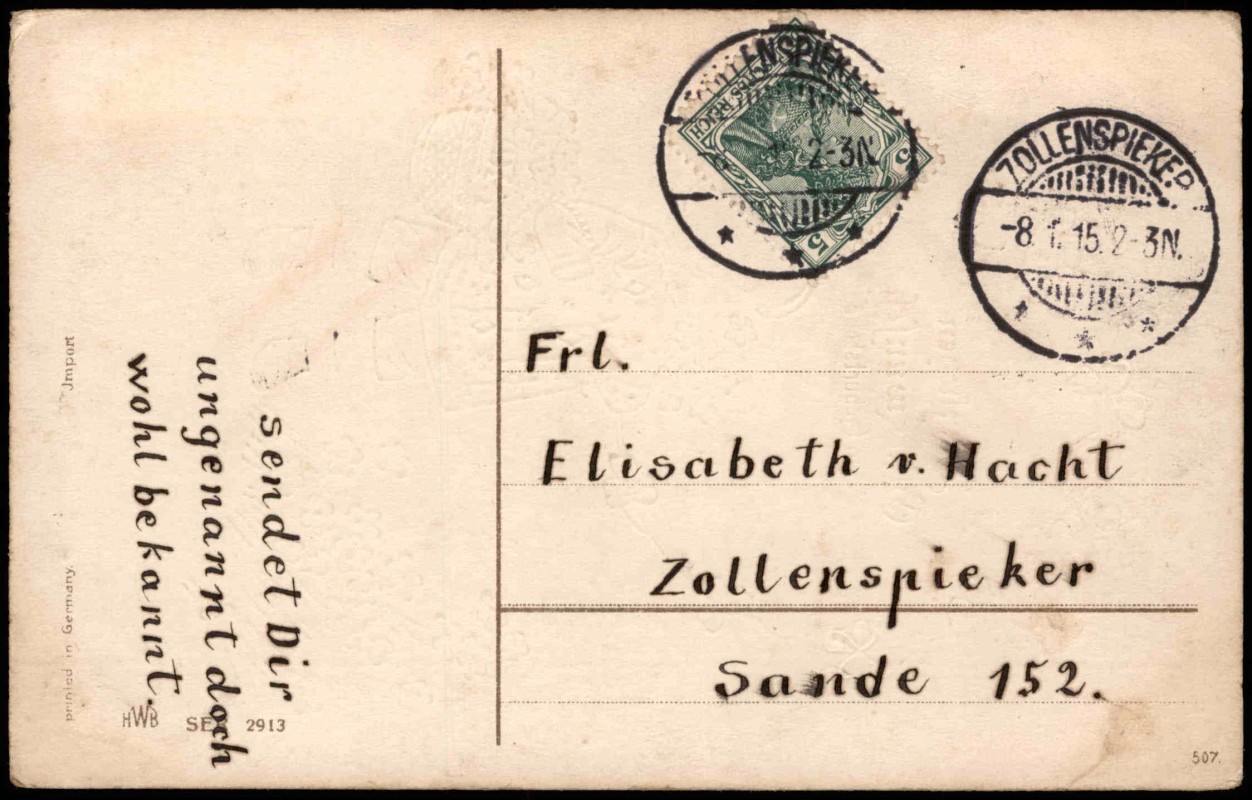 sendet Dir
ungenannt doch
wohl bekannt.
Jmport
printed in Germany.
HWB SER 2913
ZOLLENSPIEKER
2-3N.
5
5
ZOLLENSPIEKER
-8. 1. 15. 2-3N.
Frl.
Elisabeth v. Hacht
Zollenspieker
Sande 152.
507.